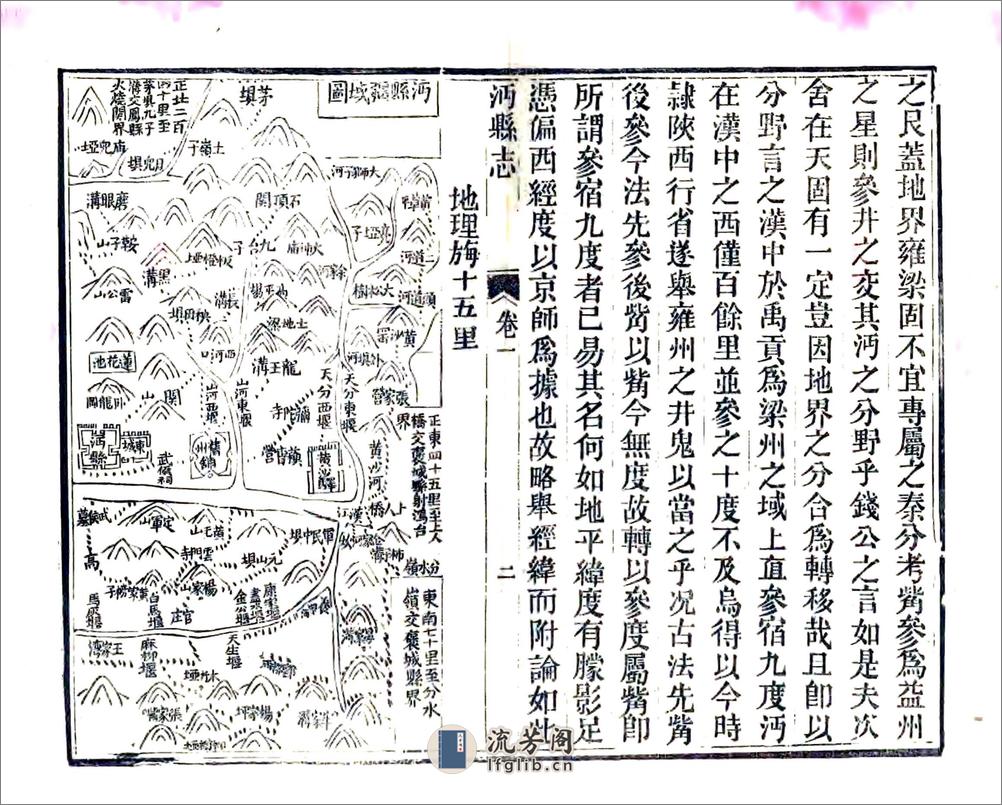 之艮蓋地界雍梁固不宜專屬之秦分考觜參爲益州
之星則參井之交其沔之分野乎錢公之言如是夫次
舍在天固有一定豈因地界之分合爲轉移哉且卽以
分野言之漢中於禹貢爲梁州之域上直參宿九度沔
在漢中之西僅百餘里並參之十度不及烏得以今時
隷陝西行省遂舉雍州之井鬼以當之乎况古法先觜
後參今法先參後觜以觜今無度故轉以參度屬觜卽
所謂參宿九度者已易其名何如地平緯度有朦影足
憑偏西經度以京師爲據也故略舉經緯而附論如此
沔縣志
卷一
二
地理每十五里
沔縣疆域圖
正北二百
四十里至
茅垻九子
溝交鳳縣
火燒關界
茅垻
廟兒埡
土嶺子
大師子河
石頂關
磨眼溝
鞍子山
九台子
大沖廟
板橙埡
黑溝
雷公山
長溝
秧田垻
土地梁
西河口
二道河
頭道河
黃沙
徐家河
大松樹
蓮花池
卧龍岡
關山
龍王溝
彌陀寺
山河西堰
山河東堰
天分西堰
天分東堰
張家營
沔縣
東城
舊州鋪
黃沙驛
漢肖營
武侯祠
黃沙河
正東四十五里至上人
橋交褒城縣界
上人橋
漢江
分水嶺
東南七十里至分水
嶺交褒城縣界
武侯墓
定軍山
雲門寺
元山垻
軍民中垻
楊家山
康家堰
金公堰
白馬堰
馬家堰
官庄
天生堰
麻柳堰
王家溝
水井埡
張家嘴
楊家坪
流芳阁
lfglib.cn